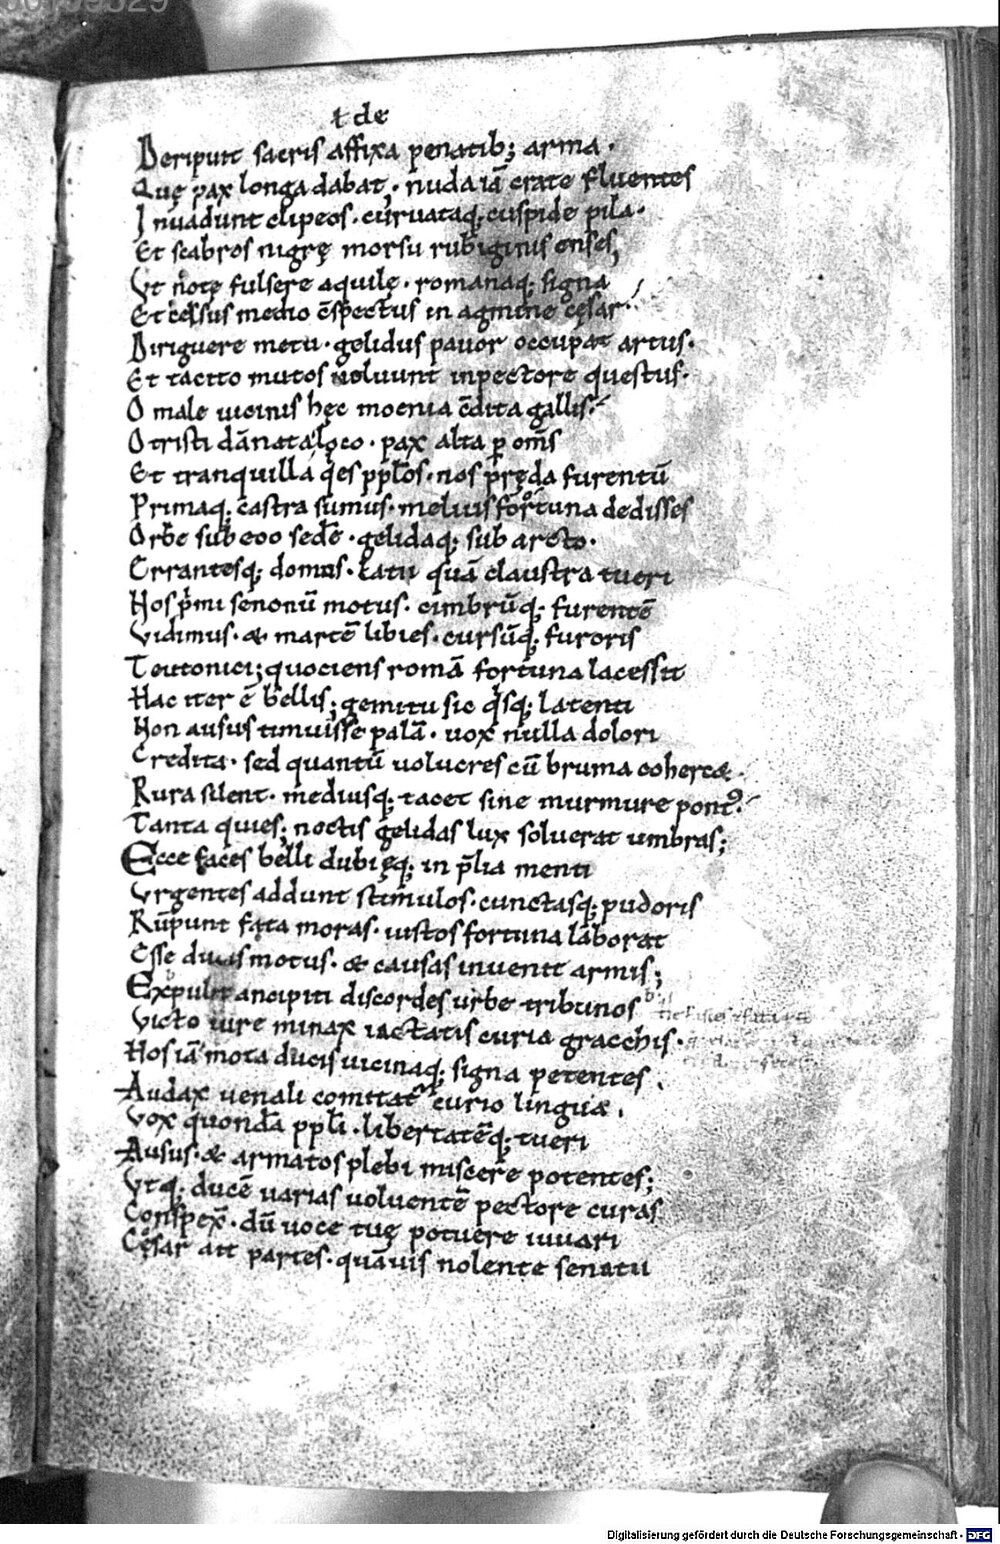 ł de
Deripunt sacris affixa penatib; arma ·
Quę pax longa dabat, · nuda iā crate fluentes
Inuadunt clipeos · curuataq; cuspide pila ·
Et scabros nigrę morsu rubiginis enses,
Vt notę fulsere aquilę · romanaq; signa
Et celsus medio c̄spectus in agmine cęsar ·
Diriguere metu · gelidus pauor occupat artus ·
Et tacito mutos uoluunt inpectore questus ·
O male uicinis hęc moenia c̄dita gallis ·
O tristi dānata loco · pax alta ꝑ om̄s
Et tranquilla q̇es pp̄los · nos pręda furentū
Primaq; castra sumus · melius fortuna dedisses
Orbe sub eoo sedē · gelidaq; sub arcto ·
Errantesq; domos · Latii quā claustra tueri
Nos p̍mi senonū motus · cimbrūq; furentē
Vidimus · & martē libies · cursūq; furoris
Teutonici; quociens romā fortuna lacessit
Hac iter ē bellis; gemitu sic q̍sq; latenti
Non ausus timuisse palā · uox nulla dolori
Credita · sed quantū uolucres cū bruma coherc& ·
Rura silent · mediusq; tacet sine murmure pontꝰ ·
Tanta quies; noctis gelidas lux soluerat umbras;
Ecce faces belli dubięq; in p̄lia menti
Vrgentes addunt stimulos · cunctasq; pudoris
Rūpunt fata moras · iustos fortuna laborat
Esse ducis motus · & causas inuenit armis;
Expulit ancipiti discordes urbe tribunos
Victo iure minax iactatis curia gracchis ·
Hos iā mota ducis uicinaq; signa petentes
Audax uenali comitat᷑ curio lingua ·
Vox quondā pp̄li · libertatēq; tueri
Ausus · & armatos plebi miscere potentes;
Vtq; ducē uarias uoluentē pectore curas
Conspex̄ · dū uoce tuę potuere iuuari
Cęsar ait partes · quāuis nolente senatu
Digitalisierung gefördert durch die Deutsche Forschungsgemeinschaft - DFG